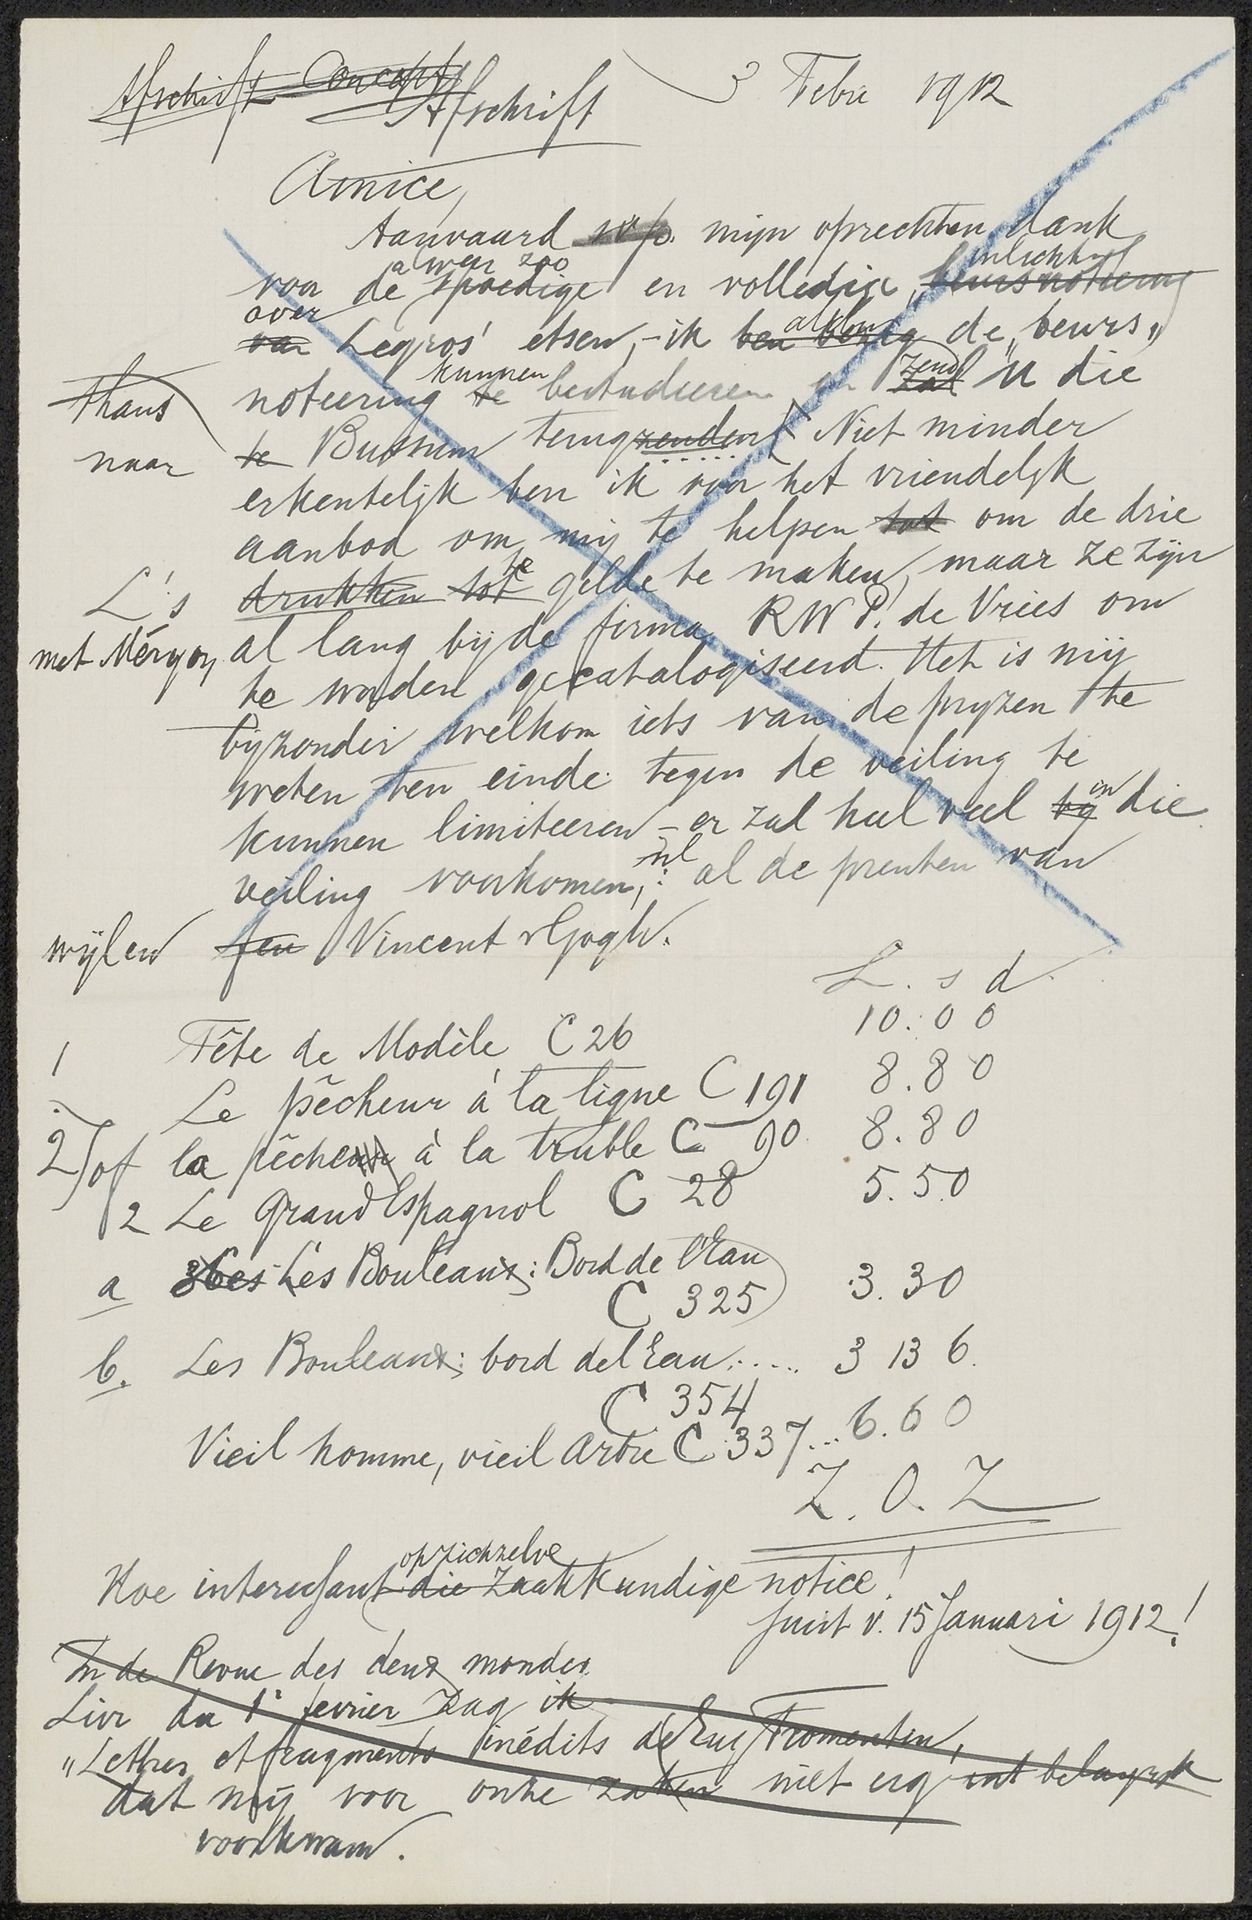 Afschrift Concept
Afschrift 3 Febr 1912
Amice,
Aanvaard mijn oprechten dank
alweer zoo inlichting
voor de spoedige en volledige, beursnoteering
over
van Legros' etsen, - ik ben bezig de „beurs„
kunnen zend
thans noteering te bestudeeren en zal u die
naar te Bussum terugzenden. Niet minder
erkentelijk ben ik voor het vriendelijk
aanbod om mij te helpen tot om de drie
te
L's drukken tot gelde te maken, maar ze zijn
met Méryon, al lang bij de firma RWP. de Vries om
te worden gecatalogiseerd. Het is mij
bijzonder welkom iets van de pryzen te
weten ten einde tegen de veiling te
in
kunnen limiteeren - er zal heel veel bij die
nl
veiling voorkomen,: al de prenten van
wijlen feu Vincent v Gogh.
L. s d.
1 Tête de Modèle C 26 10.00
Le pêcheur à la ligne C 191 8.80
2) of la pêcheur à la truble C 90 8.80
2 Le Grand Espagnol C 28 5.50
a Les Bouleaux: Bord de l'Eau
C 325 3.30
b. Les Bouleaux; bord del Eau..... 3 13 6.
C 354
Vieil homme, vieil Arbre C 337... 6.60
Z. O. Z
opzichzelve
Hoe interessant die zaakkundige notice!
Juist v. 15 Januari 1912!
In de Revue des deux mondes
Livr du 1r fevrier zag ik
„Lettres et fragments inédits de Eug Fromentin,
dat mij voor onze zaken niet erg belangrijk
voorkwam.